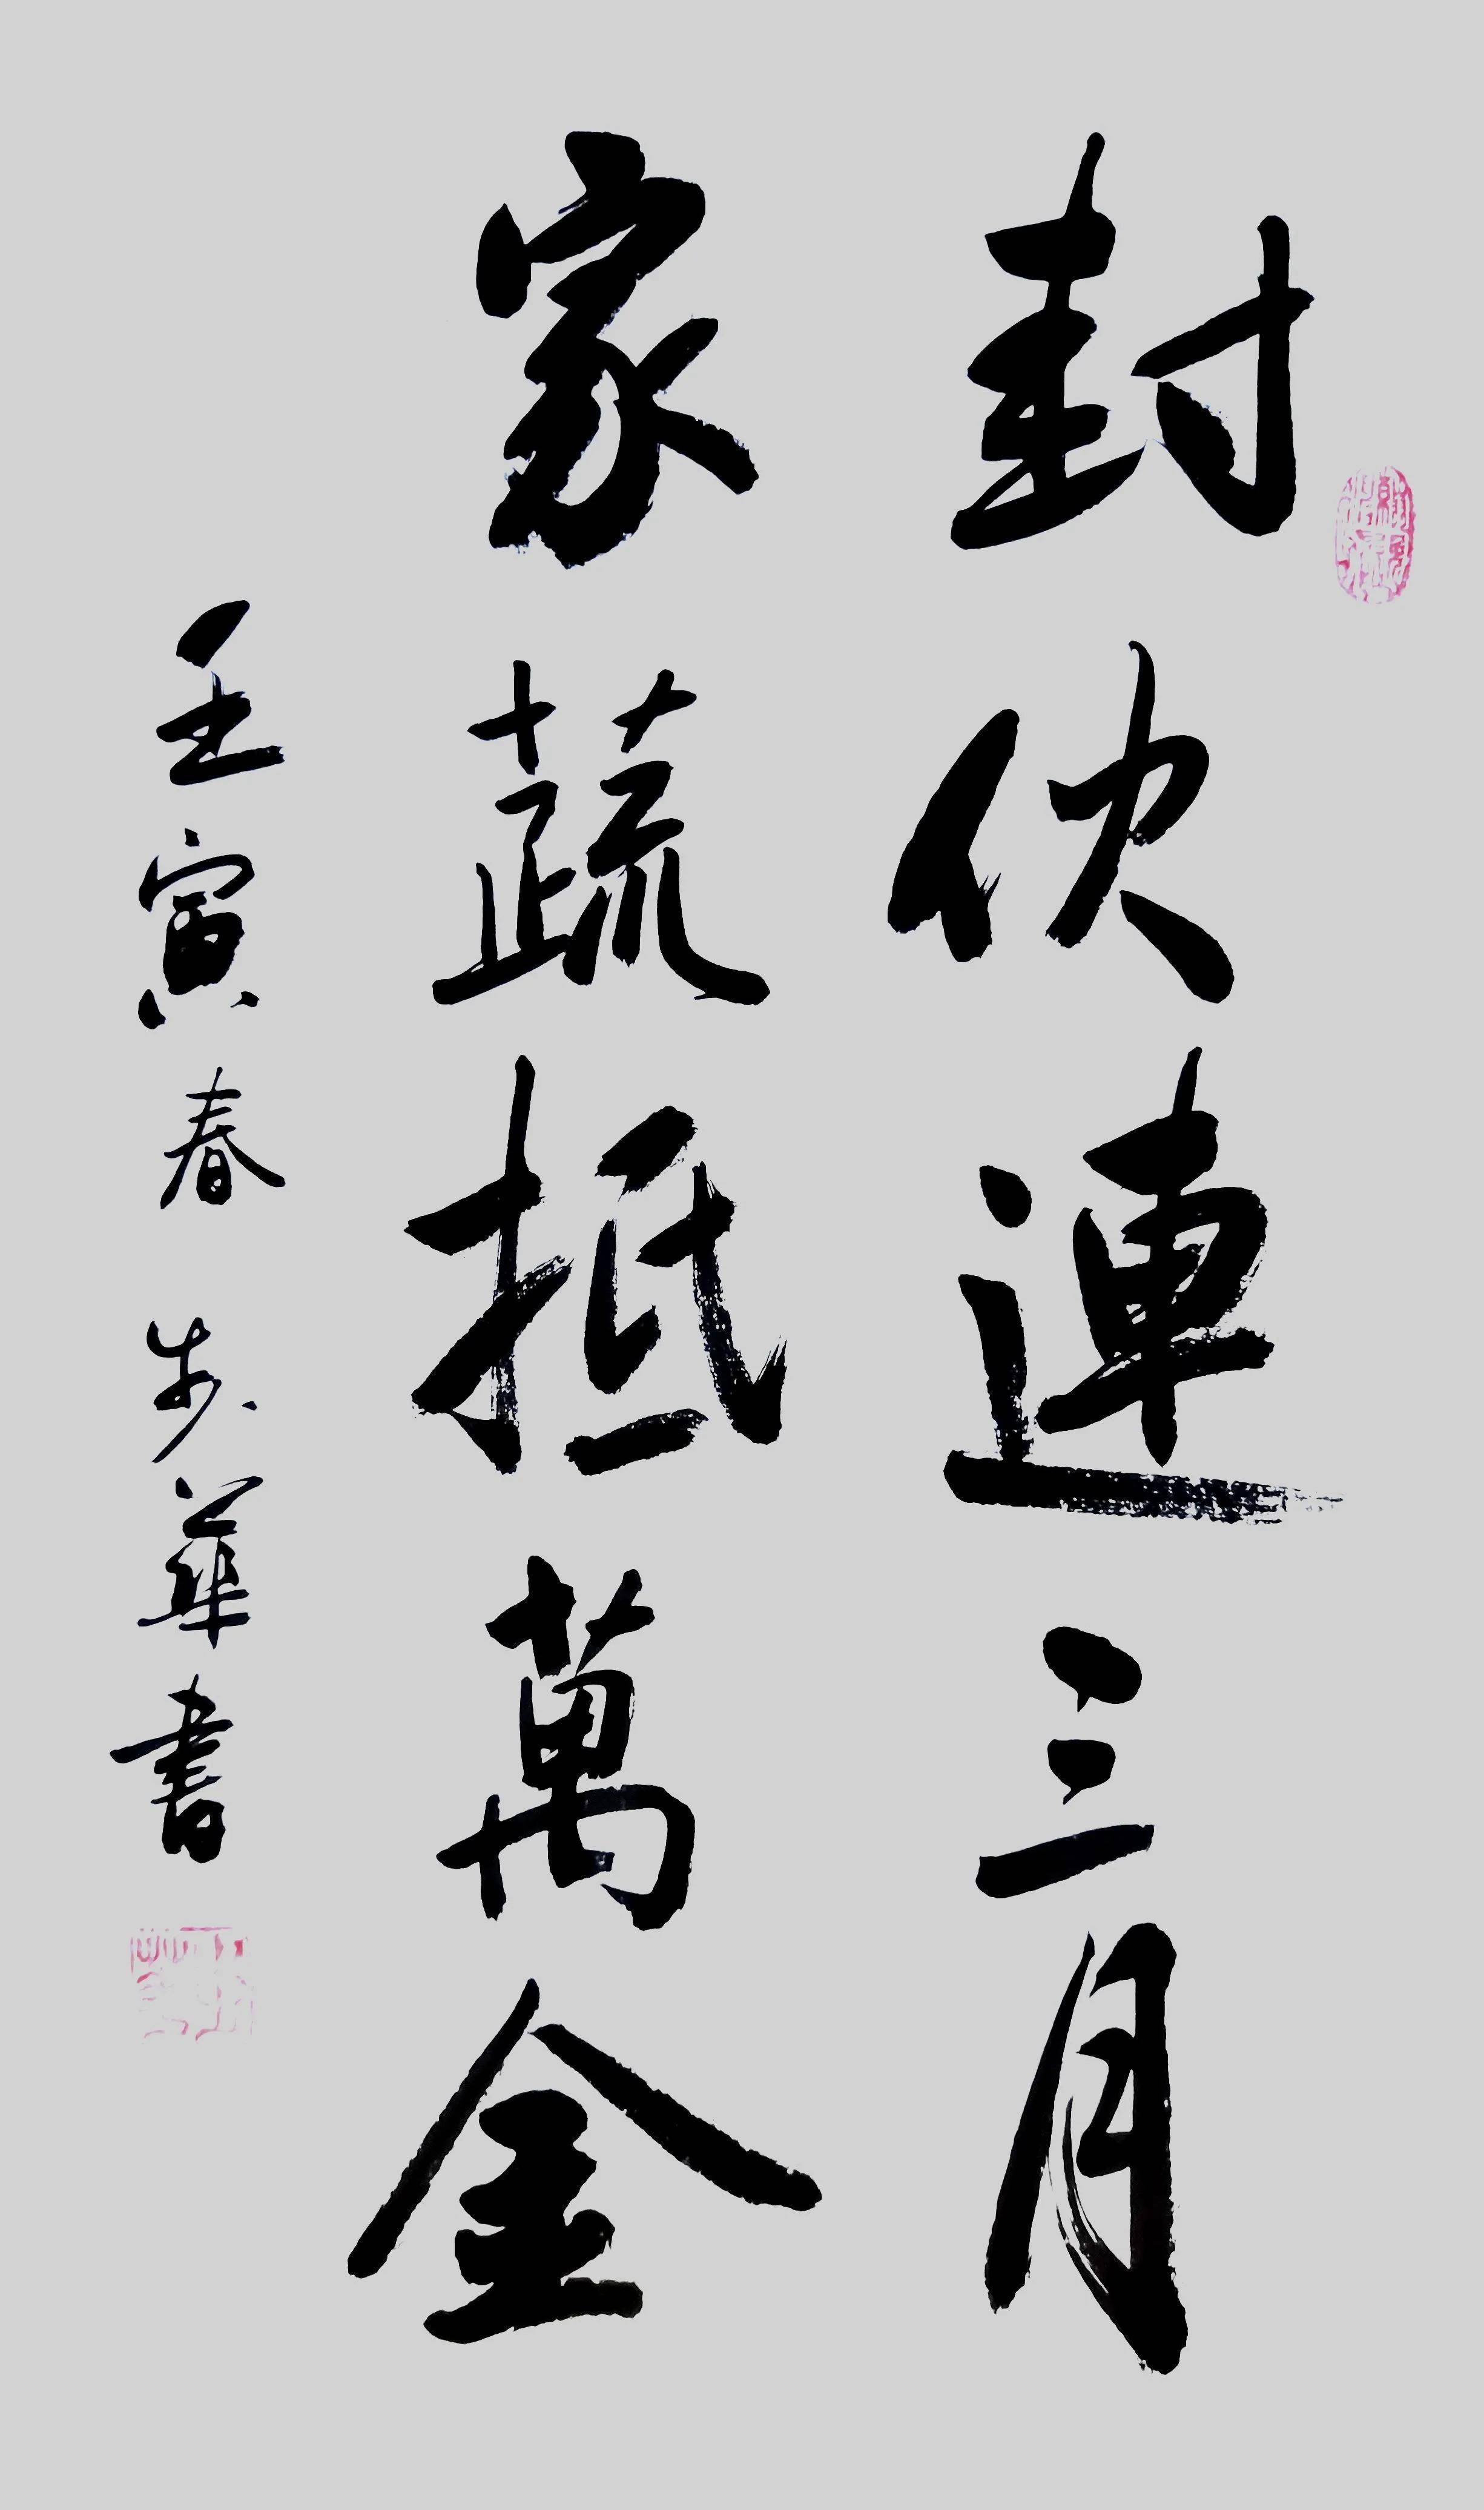 封伙連三月
家蔬抵萬金
壬寅春 步華書